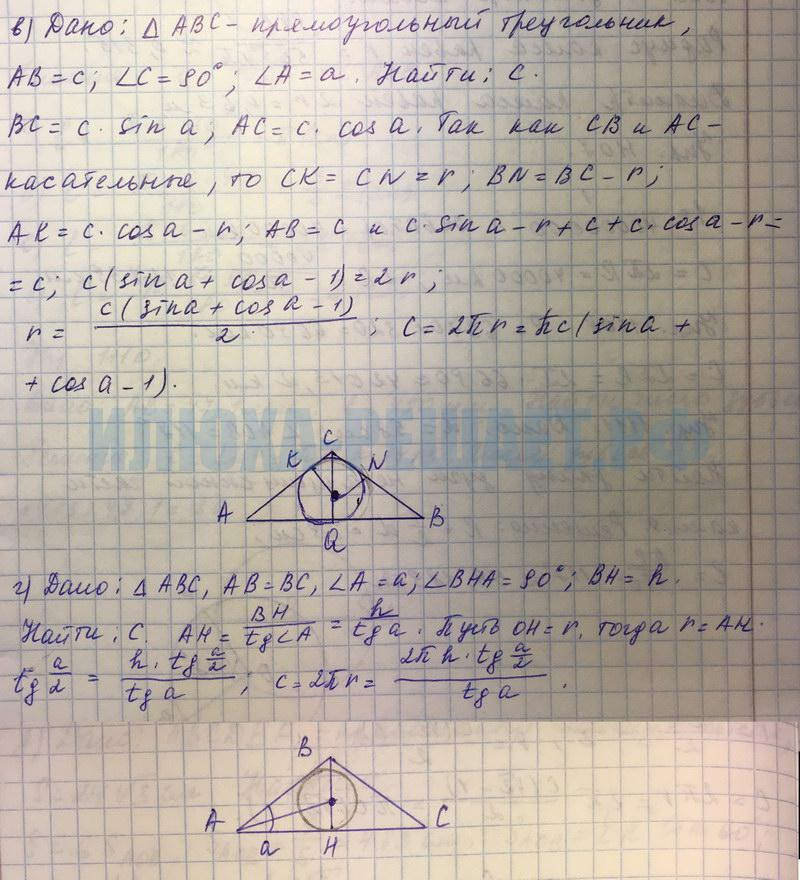 в) Дано: Δ ABC - прямоугольный треугольник,
AB = c; ∠C = 90°; ∠A = a. Найти: C.
BC = c · sin a; AC = c · cos a. Так как CB и AC -
касательные, то CK = CN = r; BN = BC - r;
AK = c · cos a - r; AB = c и c · sin a - r + c + c · cos a - r =
= c; c(sin a + cos a - 1) = 2r;
r = c(sin a + cos a - 1) / 2; C = 2πr = πc(sin a +
+ cos a - 1).
ИЛЮХА-РЕШАЕТ.РФ
C
K N
A B
Q
г) Дано: Δ ABC, AB = BC, ∠A = a; ∠BHA = 90°; BH = h.
Найти: C. AH = BH / tg∠A = h / tg a. Пусть OH = r, тогда r = AH ·
tg a/2 = h · tg a/2 / tg a; c = 2πr = 2πh · tg a/2 / tg a.
B
A C
a H